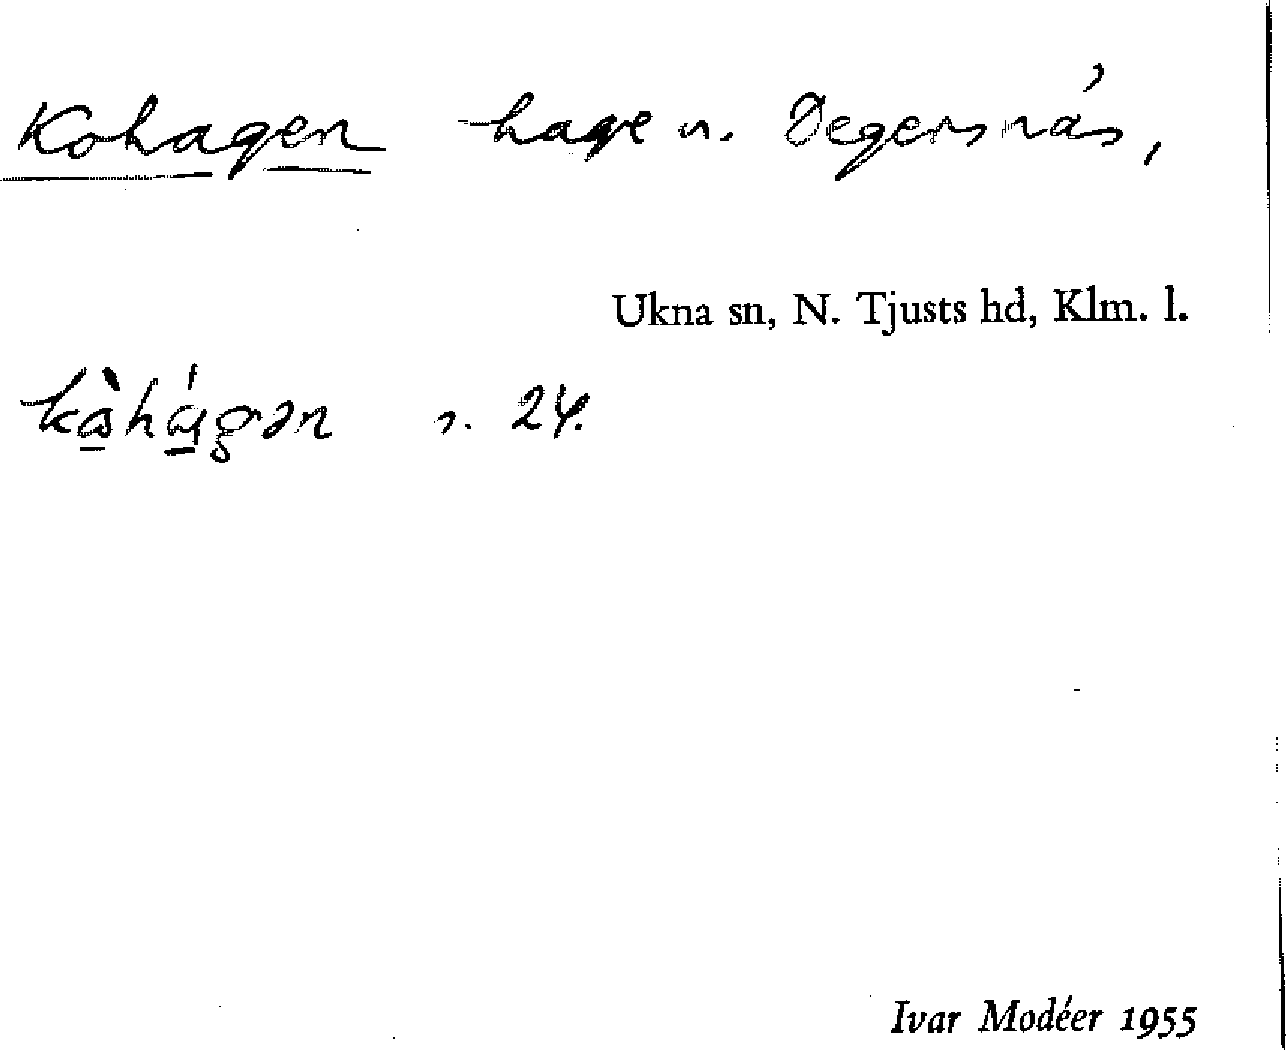 Kohagen hage u. Degersnäs,
Ukna sn, N. Tjusts hd, Klm. l.
24.
Ivar Modéer 1955